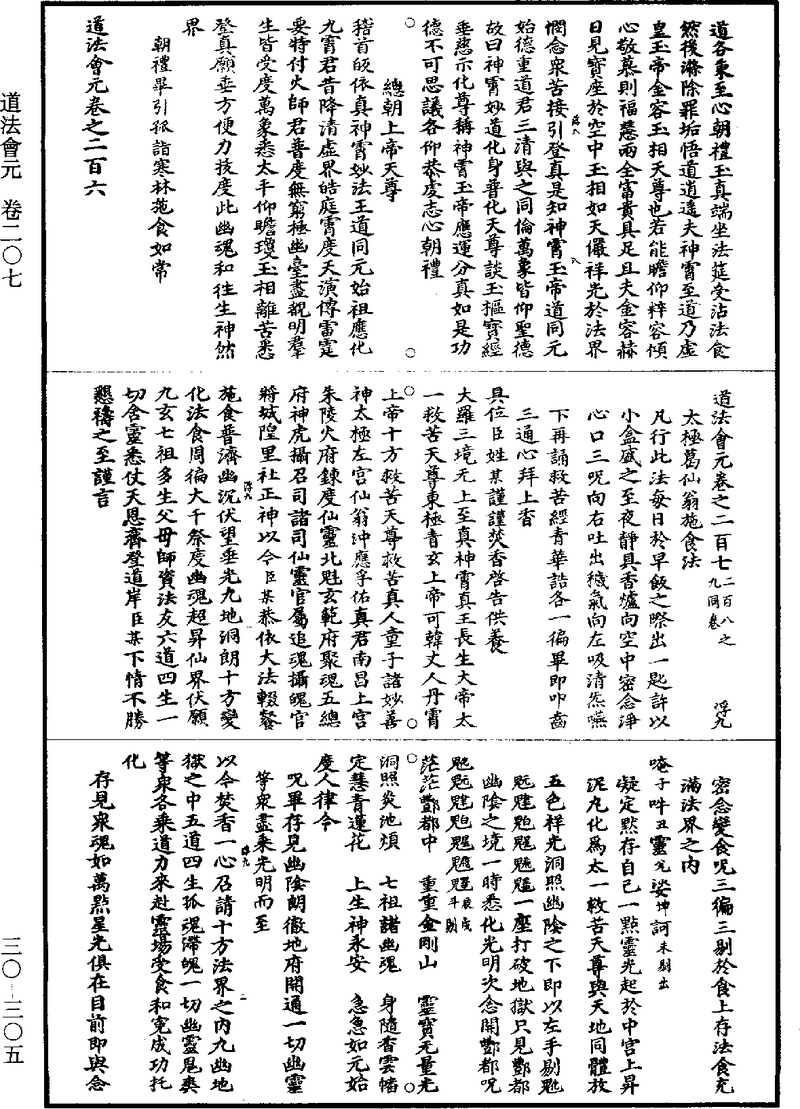 道各秉至心朝禮玉真端坐法筵受沾法食
然後滌除罪垢悟道逍遙夫神霄至道乃虛
皇玉帝金容玉相天尊也若能瞻仰粹容傾
心敬慕則福慧兩全富貴具足且夫金容赫
日見寶座於空中玉相如天儼祥光於法界
憫念衆苦接引登真是知神霄玉帝道同元
始德重道君三清與之同倫萬象皆仰聖德
故曰神霄妙道化身普化天尊談玉樞寶經
垂慈示化尊稱神霄玉帝應運分真如是功
德不可思議各仰恭虔志心朝禮
總朝上帝天尊
稽首皈依真神霄妙法王道同元始祖應化
九霄君昔降清虛界皓庭霄度天演傳雷霆
要特付火師君普度無窮極幽臺盡覩明羣
生皆受度萬象悉太平仰瞻瓊玉相離苦悉
登真願垂方便力拔度此幽魂和往生神然
界
朝禮畢引孤詣寒林施食如常
道法會元卷之二百六
道法會元卷之二百七 二百八之九同卷 浮九
太極葛仙翁施食法
凡行此法每日於早飯之際出一匙許以
小盒盛之至夜靜具香爐向空中密念淨
心口三呪向右吐出穢氣向左吸清炁嚥
下再誦救苦經青華誥各一徧畢即叩齒
三通心拜上香
具位臣姓某謹謹焚香啓告供養
大羅三境元上至真神霄真王長生大帝太
一救苦天尊東極青玄上帝可韓丈人丹霄
上帝十方救苦天尊救苦真人童子諸妙善
神太極左宮仙翁沖應孚佑真君南昌上宮
朱陵火府鍊度仙靈北魁玄範府聚魂五總
府神虎攝召司諸司仙靈官屬追魂攝魄官
將城隍里社正神以今臣某恭依大法輟餐
施食普濟幽沉伏望垂光九地洞朗十方變
化法食周徧大千祭度幽魂超昇仙界伏願
九玄七祖多生父母師資法友六道四生一
切含靈悉仗天恩齊登道岸臣某下情不勝
懇禱之至謹言
密念變食呪三徧三剔於食上存法食充
滿法界之内
唵子吽丑靈元娑坤訶未剔出
凝定默存自己一點靈光起於中宮上昇
泥丸化爲太一救苦天尊與天地同體放
五色祥光洞照幽陰之下即以左手剔
一座打破地獄只見酆都
幽陰之境一時悉化光明次念開酆都呪
茫茫酆都中　重重金剛山　靈寶无量光
洞照炎池煩　七祖諸幽魂　身隨香雲旛
定慧青蓮花　上生神永安　急急如元始
度人律令
呪畢存見幽陰朗徹地府開通一切幽靈
等衆盡乘光明而至
以今焚香一心召請十方法界之内九幽地
獄之中五道四生孤魂滯魄一切幽靈鬼爽
等衆各乘道力來赴靈場受食和寃成功托
化
存見衆魂如萬點星光俱在目前即與念
道法會元　卷二〇七
三〇–三〇五